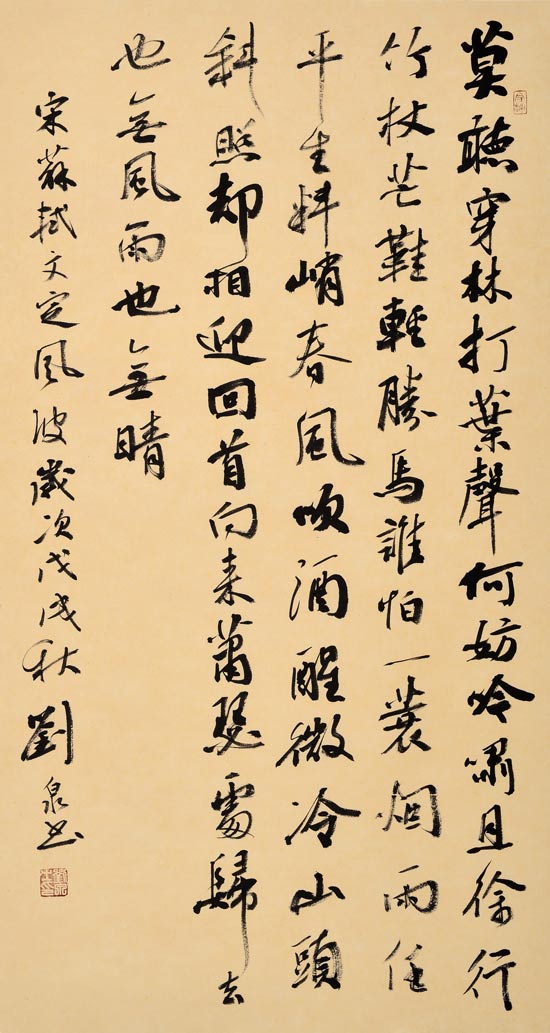 莫聽穿林打葉聲何妨吟嘯且徐行
竹杖芒鞋輕勝馬誰怕一蓑烟雨任
平生料峭春風吹酒醒微冷山頭
斜照却相迎回首向來蕭瑟處歸去
也無風雨也無晴
宋蘇軾文定風波歲次戊戌秋劉泉書